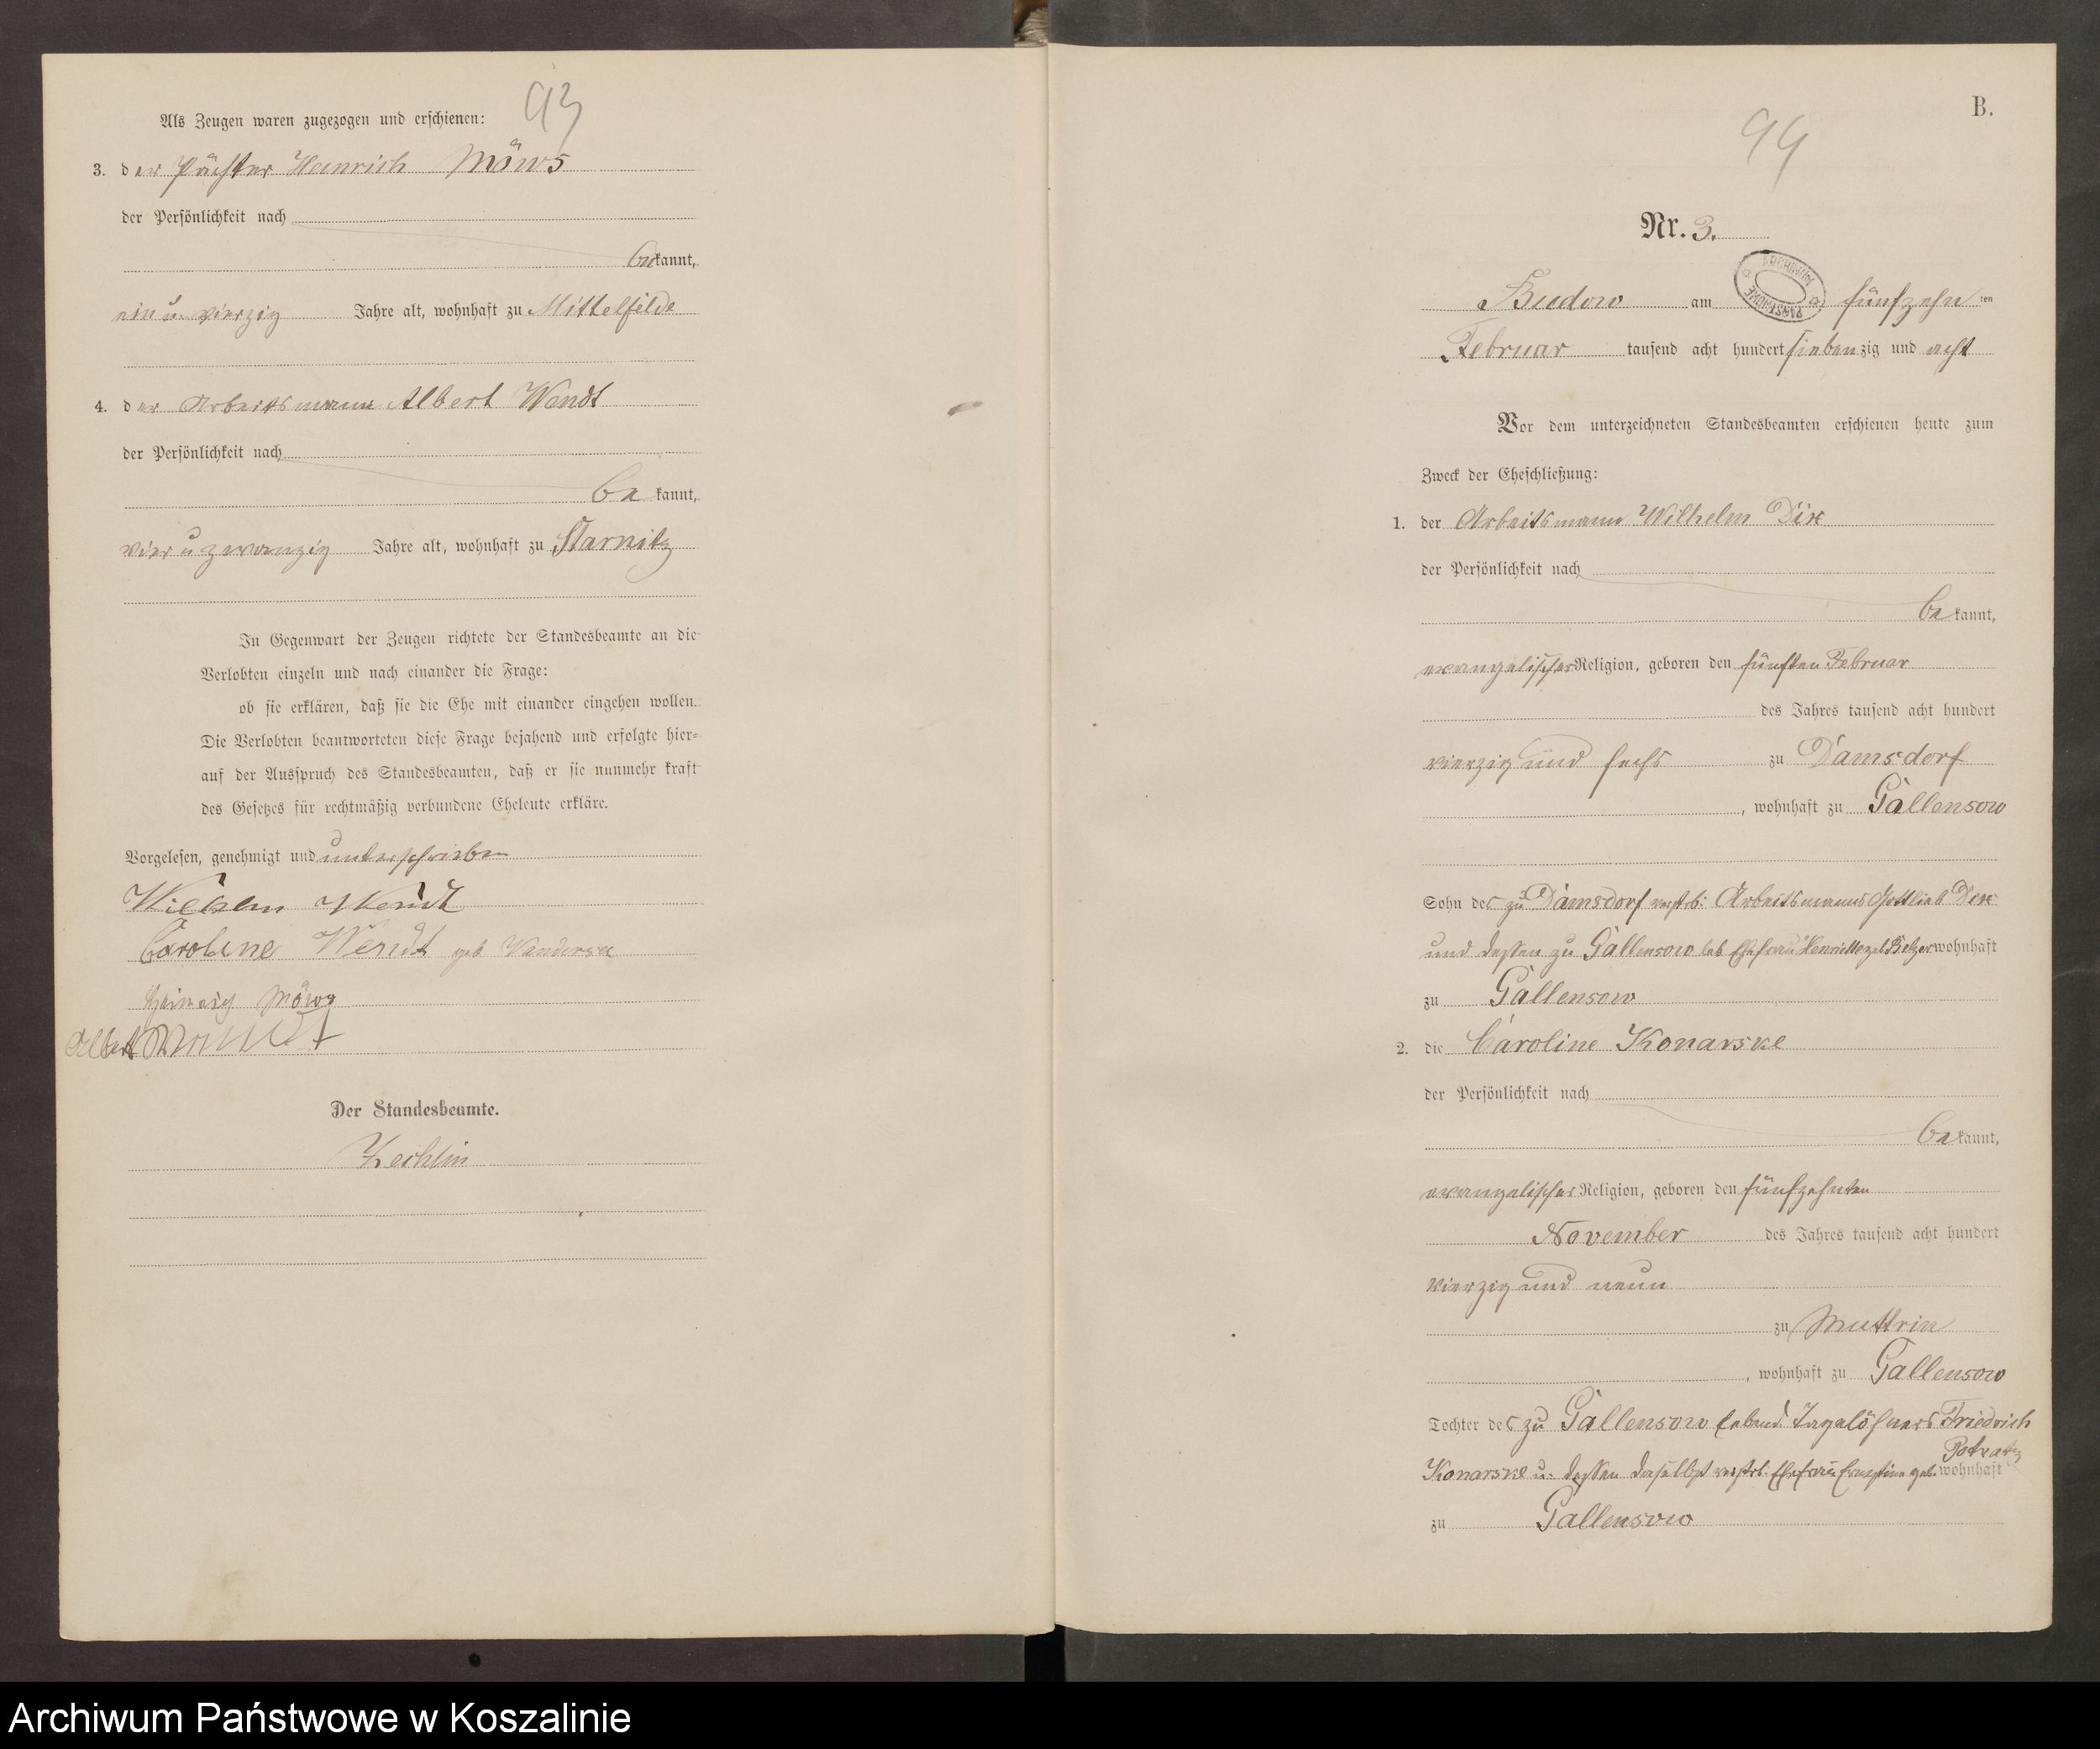 93
Als Zeugen waren zugezogen und erschienen:
3. der Pächter Heinrich Möws
der Persönlichkeit nach
bekannt,
ein u. vierzig Jahre alt, wohnhaft zu Mittelfelde
4. der Arbeitsmann Albert Wendt
der Persönlichkeit nach
bekannt,
vier u zwanzig Jahre alt, wohnhaft zu Starnitz
In Gegenwart der Zeugen richtete der Standesbeamte an die
Verlobten einzeln und nach einander die Frage:
ob sie erklären, daß sie die Ehe mit einander eingehen wollen.
Die Verlobten beantworteten diese Frage bejahend und erfolgte hier-
auf der Ausspruch des Standesbeamten, daß er sie nunmehr kraft
des Gesetzes für rechtmäßig verbundene Eheleute erkläre.
Vorgelesen, genehmigt und unterschrieben
Wilhelm Wendt
Caroline Wendt geb
Heinrich Möws
Albert Wendt
Der Standesbeamte.
Zechlin
B.
94
Nr. 3.
Budow am fünfzehnten
Februar tausend acht hundert siebenzig und acht
Vor dem unterzeichneten Standesbeamten erschienen heute zum
Zweck der Eheschließung:
1. der Arbeitsmann Wilhelm Dix
der Persönlichkeit nach
bekannt,
evangelischer Religion, geboren den fünften Februar
des Jahres tausend acht hundert
vierzig und sechs zu Damsdorf
, wohnhaft zu Gallensow
Sohn des zu Damsdorf verstb: Arbeitsmanns Gottlieb Dix
und dessen zu Gallensow leb Ehefrau Henriette geb Belzer wohnhaft
zu Gallensow
2. die Caroline Konarske
der Persönlichkeit nach
bekannt,
evangelischer Religion, geboren den fünfzehnten
November des Jahres tausend acht hundert
vierzig und neun
zu Muttrin
, wohnhaft zu Gallensow
Tochter des zu Gallensow lebend. Tagelöhners Friedrich
Konarske u. dessen daselbst verstb. Ehefrau Ernestine geb. Potratz wohnhaft
zu Gallensow
Archiwum Państwowe w Koszalinie